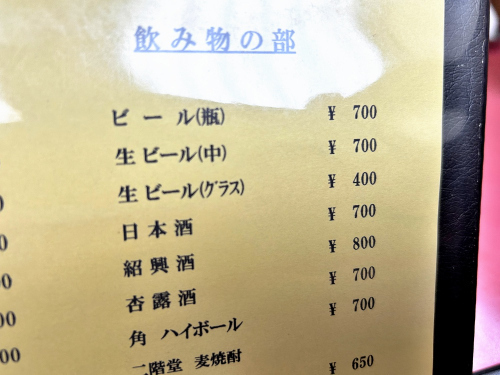 飲み物の部
ビール(瓶) ¥ 700
生ビール(中) ¥ 700
生ビール(グラス) ¥ 400
日本酒 ¥ 700
紹興酒 ¥ 800
杏露酒 ¥ 700
角 ハイボール ¥ 700
二階堂 麦焼酎 ¥ 650